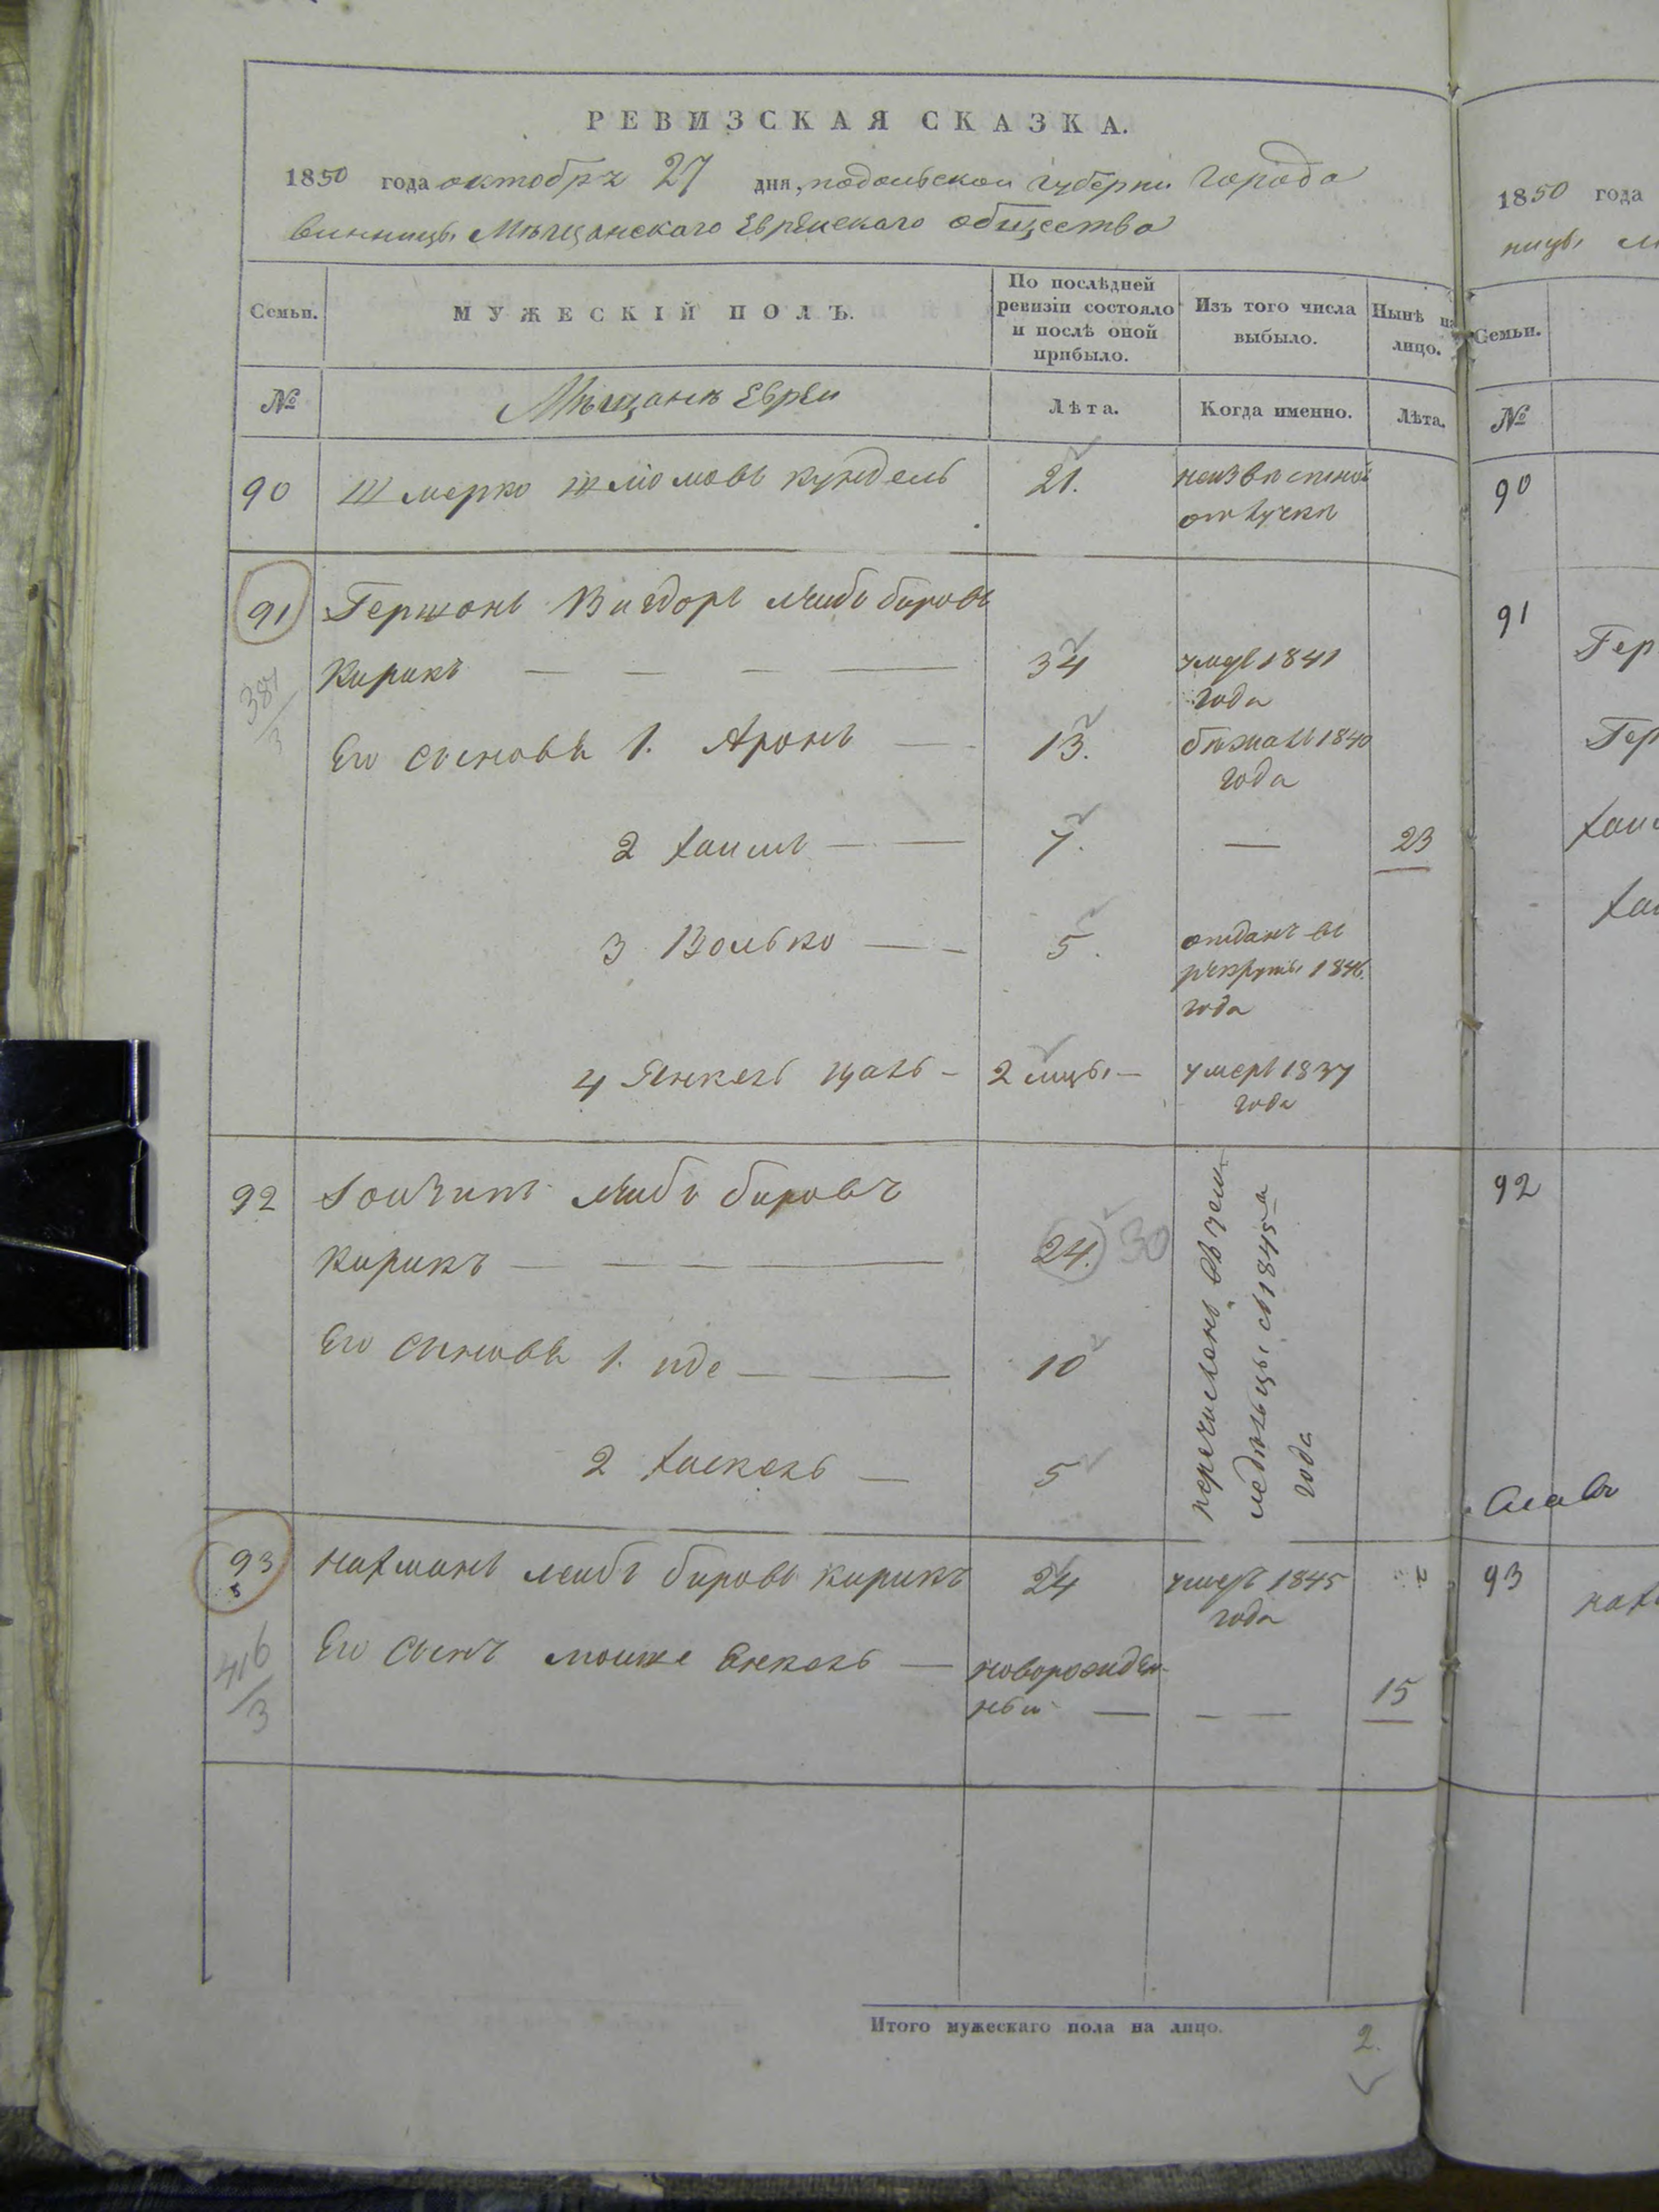 РЕВИЗСКАЯ СКАЗКА.
1850 года октобря 27 дня, подольской губерни города
винницы Мѣщанскаго Еврейскаго общества
Семьи.
МУЖЕСКІЙ ПОЛЪ.
По послѣдней
ревизіи состояло
и послѣ оной
прибыло.
Изъ того числа
выбыло.
Нынѣ на
лицо.
№
Мѣщанѣ Евреи
Лѣта.
Когда именно.
Лѣта.
90 Шмерко шлiомовъ кундель 21. неизвѣстной
отлучкѣ
91 Гершонъ Вигдоръ лейбъ беровъ
Кирикъ 34 умеръ 1841
года
381
3
Его сыновья 1. Аронъ 13. бѣжалъ 1840
года
2 хаимъ 7. — 23
3 Волько 5. отданъ въ
рекруты 1846.
года
4 Янкель цаль 2 мцы умеръ 1837
года
92 лейбъ беровъ
Кирикъ 24. 30
Его сыновья 1. иде 10
2 хаскель 5
перечисленъ въ зем
ледѣльцы съ 1845 -а
года
93 нахманъ лейбъ беровъ кирикъ 24 умеръ 1845
года
416
3
Его сынъ мошке Енкель новорожден-
ный 15
Итого мужескаго пола на лицо. 2.
1850 года
ницы
Семьи.
№
90
91
Гер
Гер
хаи
92
93
нах